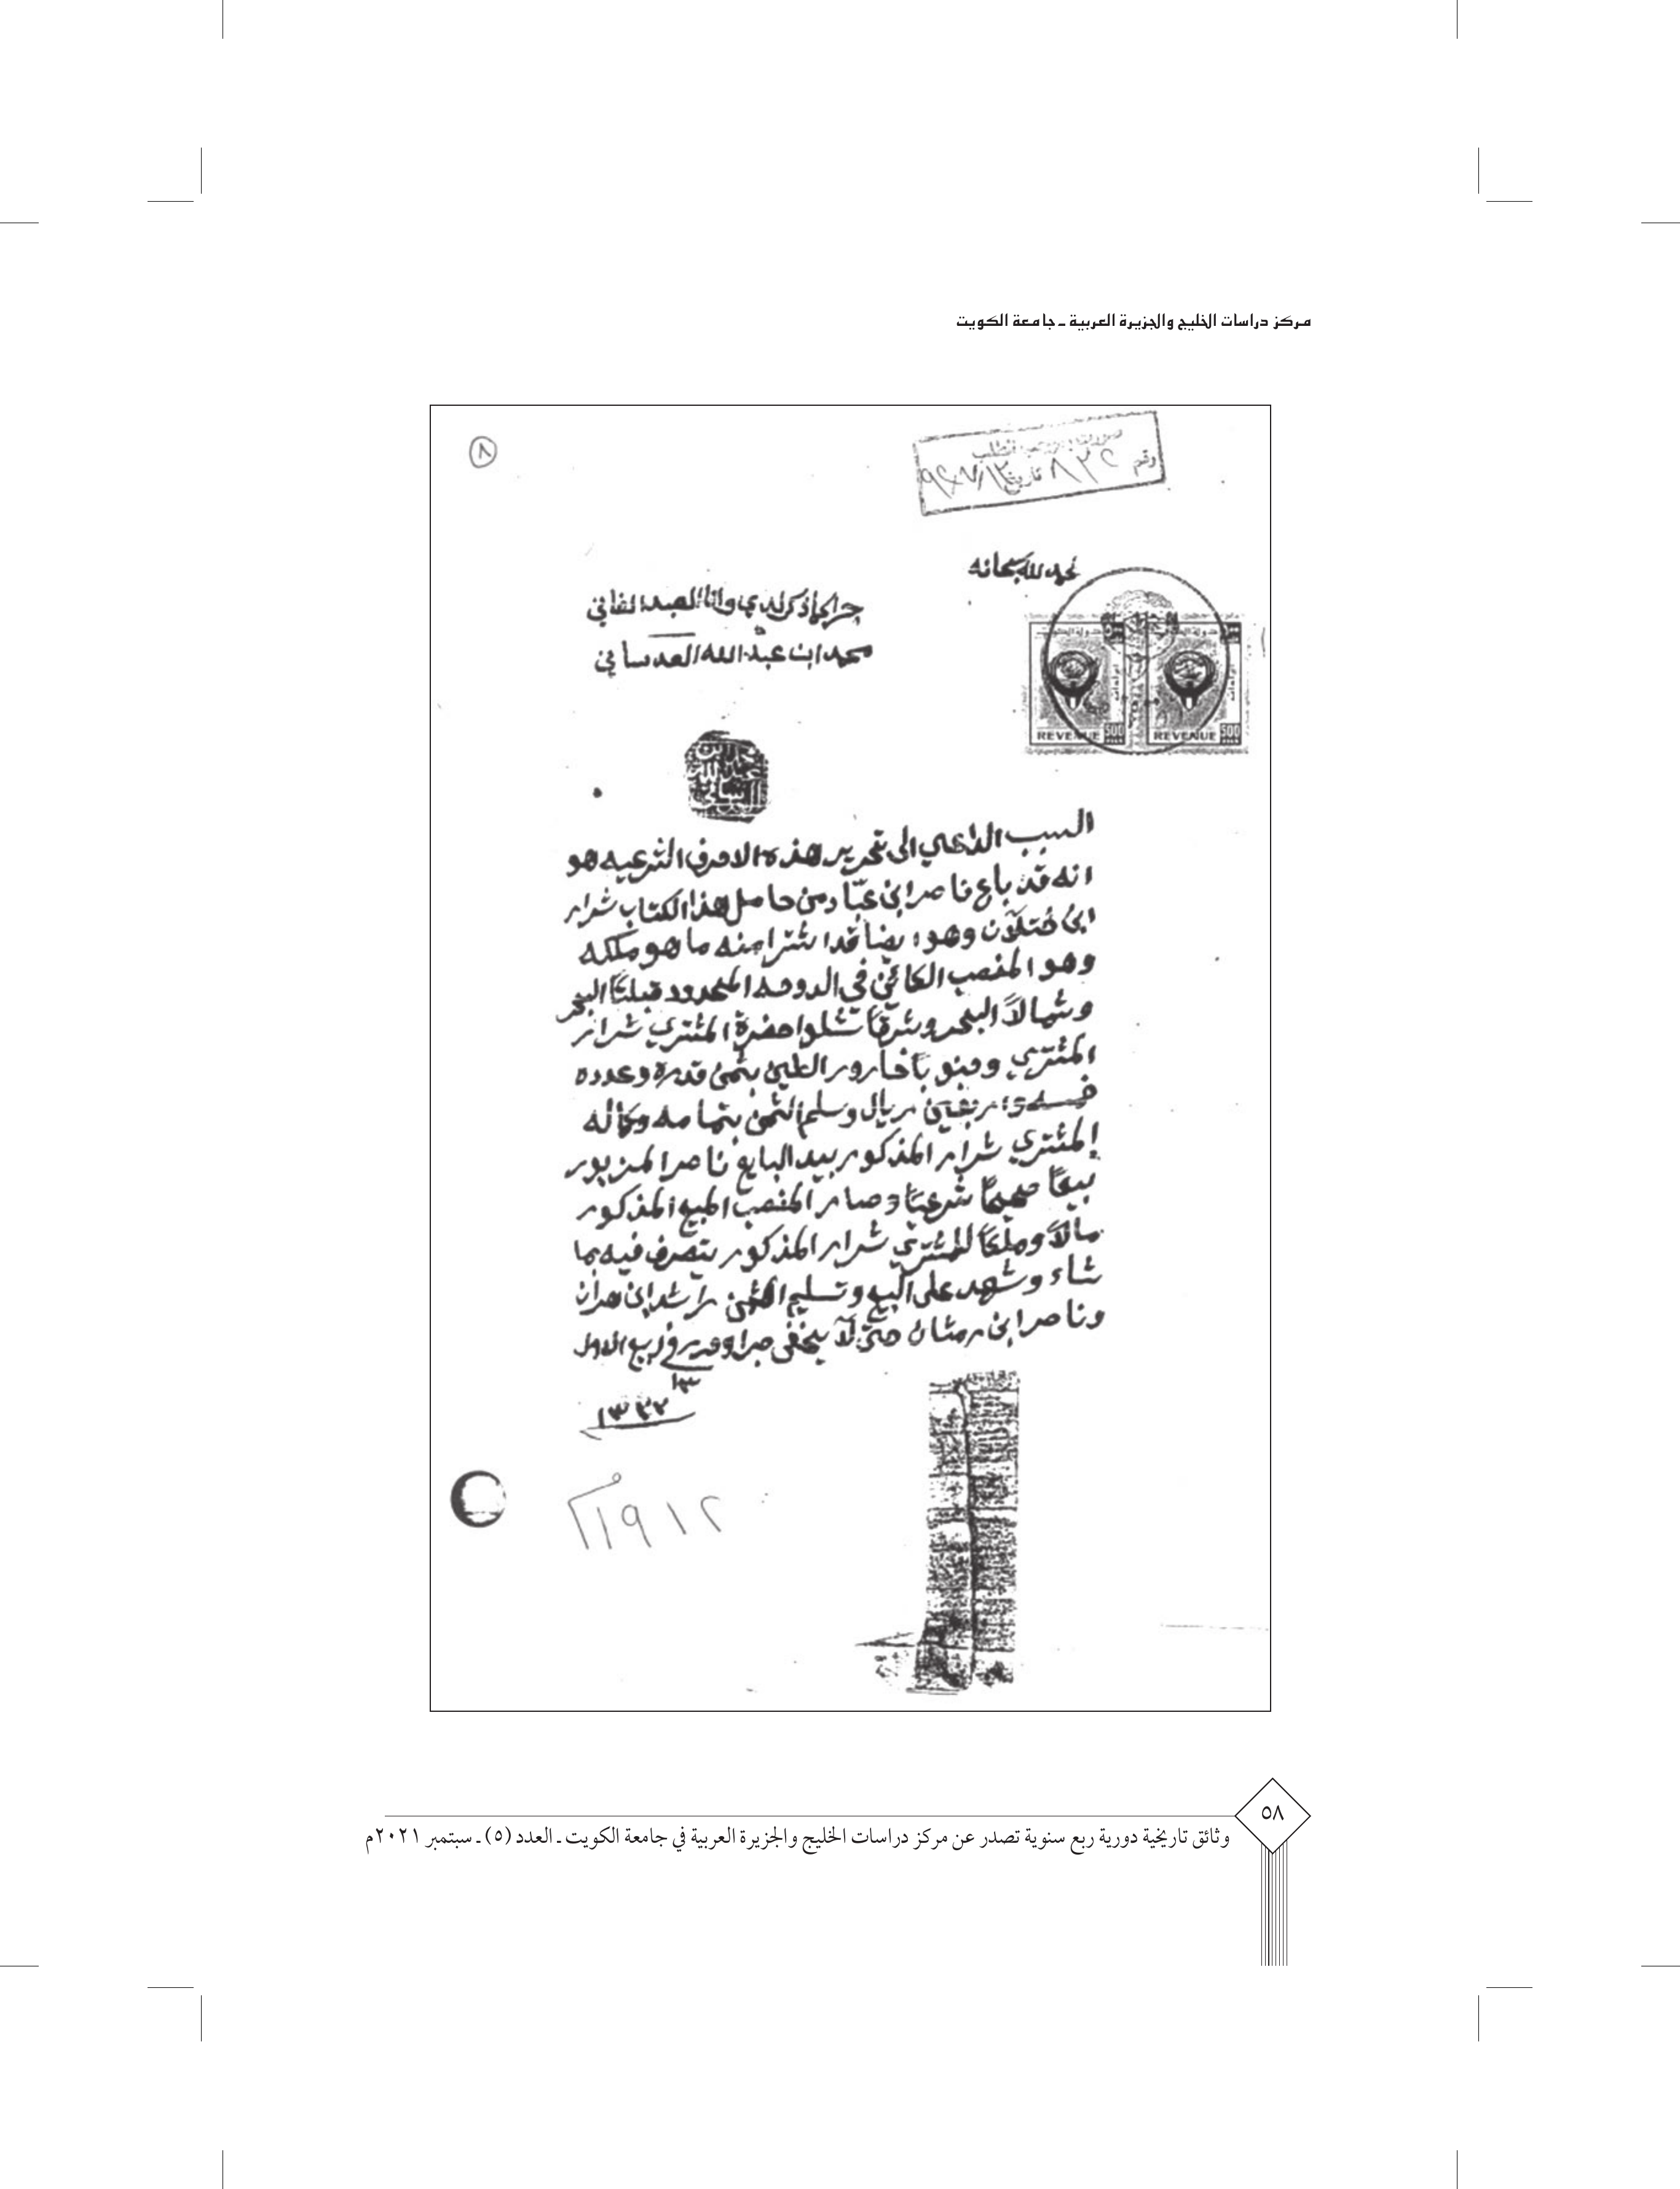 مركز دراسات الخليج والجزيرة العربية ـ جامعة الكويت
٨
رقم ٨٢٢ تاريخ
نحمد لله سبحانه
جرا كما ذكر لدي وانا العبد الفاني
محمد ابن عبد الله العدساني
دولة الكويت
REVENUE 500
REVENUE 500
السبب الداعي الى تحرير هذه الاحرف الشرعيه هو
انه قد باع ناصر ابن عبّاد من حامل هذا الكتاب شرار
ابن وهو ايضا قد اشترا منه ما هو ملكه
وهو المنصب الكائن في الدوحه المحدود قبلتًا البحر
وشمالاً البحر وشرقاً حضرة المشتري شرار
المشتري الطين بثمن قدره وعدده
خمسة وار ريال وسلم الثمن بتمامه وكماله
المشتري شرار المذكور بيد البايع ناصر المزبور
بيعًا صحيحًا شرعيًا وصار المنصب المبيع المذكور
مالاً وملكًا للمشتري شرار المذكور يتصرف فيه بما
شاء وشهد على البيع وتسليم الثمن راشد ابن
وناصر ابن رمثان حتى لا يخفى جرا وحرر في ربيع الاول
١٣
١٣٣٢
١٩١٢م
٥٨
وثائق تاريخية دورية ربع سنوية تصدر عن مركز دراسات الخليج والجزيرة العربية في جامعة الكويت ـ العدد (٥) ـ سبتمبر ٢٠٢١م